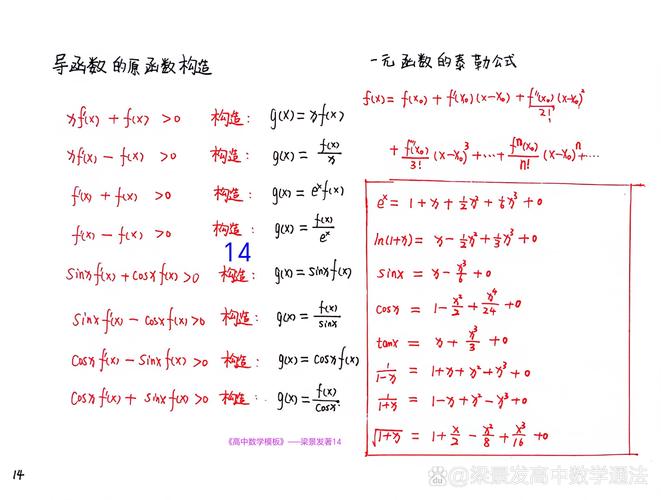 导函数的原函数构造
xf'(x) + f(x) >0 构造: g(x) = xf(x)
xf'(x) - f(x) >0 构造: g(x) = f(x)/x
f'(x) + f(x) >0 构造: g(x) = e^x f(x)
f'(x) - f(x) >0 构造: g(x) = f(x)/e^x
14
sinxf'(x) + cosxf(x) >0 构造: g(x) = sinxf(x)
sinxf'(x) - cosxf(x) >0 构造: g(x) = f(x)/sinx
cosxf'(x) - sinxf(x) >0 构造: g(x) = cosxf(x)
cosxf'(x) + sinxf(x) >0 构造: g(x) = f(x)/cosx
《高中数学模板》——梁景发著14
14
一元函数的泰勒公式
f(x) = f(x₀) + f'(x₀)(x-x₀) + f''(x₀)/2! (x-x₀)²
+ f'''(x₀)/3! (x-x₀)³ + ··· + fⁿ(x₀)/n! (x-x₀)ⁿ + ···
e^x = 1 + x + 1/2 x² + 1/6 x³ + o
ln(1+x) = x - 1/2 x² + 1/3 x³ + o
sinx = x - x³/6 + o
cosx = 1 - x²/2 + x⁴/24 + o
tanx = x + x³/3 + o
1/(1-x) = 1 + x + x² + x³ + o
1/(1+x) = 1 - x + x² - x³ + o
√(1+x) = 1 + x/2 - x²/8 + x³/16 + o
Bai du @梁景发高中数学通法